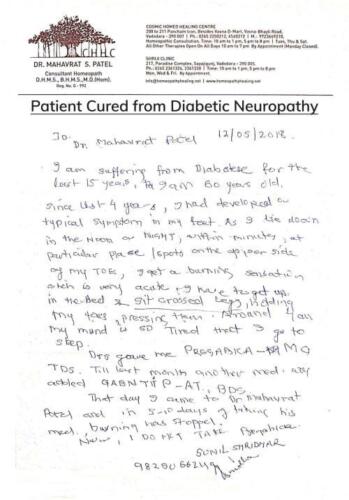 COSMIC HOMEO HEALING CENTRE
CHHC
DR. MAHAVRAT S. PATEL
Consultant Homeopath
D.H.M.S., B.H.M.S., M.D.(Hom).
SHREE CLINIC
Patient Cured from Diabetic Neuropathy
To.
Dr. Mahavrat Patel 12/05/2018.
I am suffering from Diabetese for the
last 15 years, I am 60 years old.
since last 4 years, I had developed a
typical symptom in my feet. As I lie down
in the Noon or NIGHT, within minutes, at
particular place/spots on the upper side
of my TOES, I get a burning sensation
which is very acute & I have to get up
in the Bed & sit crossed legs, holding
my toes & pressing them. Around 4 am
my mind is so Tired that I go to
sleep.
Drs gave me PREGABICA- MG
TDS. Till last month another med. was
added GABNTIP-AT, BDS.
That day I came to Dr Mahavrat
Patel and in 5-10 days of taking his
med. burning has stopped.
Now, I DO NOT TAKE
SUNIL SHRIDHAR